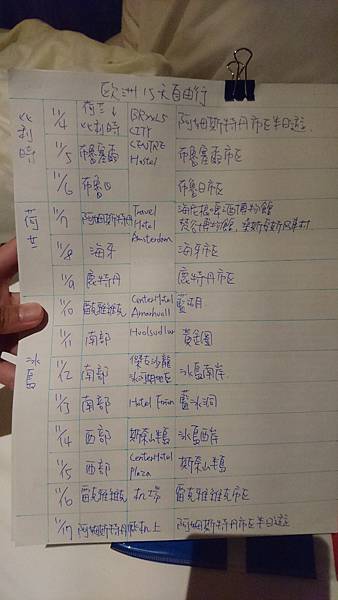 歐洲15天自由行
比利時 11/4 荷兰 比利時 BRXXLS CITY CENTRE Hostel 阿姆斯特丹市区半日遊.
11/5 布魯塞爾 布魯塞爾市区
11/6 布魯日 布魯日市区
荷兰 11/7 阿姆斯特丹 Travel Hotel Amsterdam 海尼根啤酒博物館
梵谷博物館, 桑斯安斯風車村
11/8 海牙 海牙市区
11/9 鹿特丹 鹿特丹市区
冰島 11/10 雷克雅維克 CenterHotel Arnarhvoll 藍湖
11/11 南部 黃金圈
11/12 南部 傑古沙龍 冰河湖 冰島南岸
11/13 南部 Hotel 藍冰洞
11/14 西部 斯奈山半島 冰島西岸
11/15 西部 CenterHotel Plaza 斯奈山半島
11/16 雷克雅維克 机場 雷克雅維克市区
11/17 阿姆斯特丹 机上 阿姆斯特丹市区半日遊